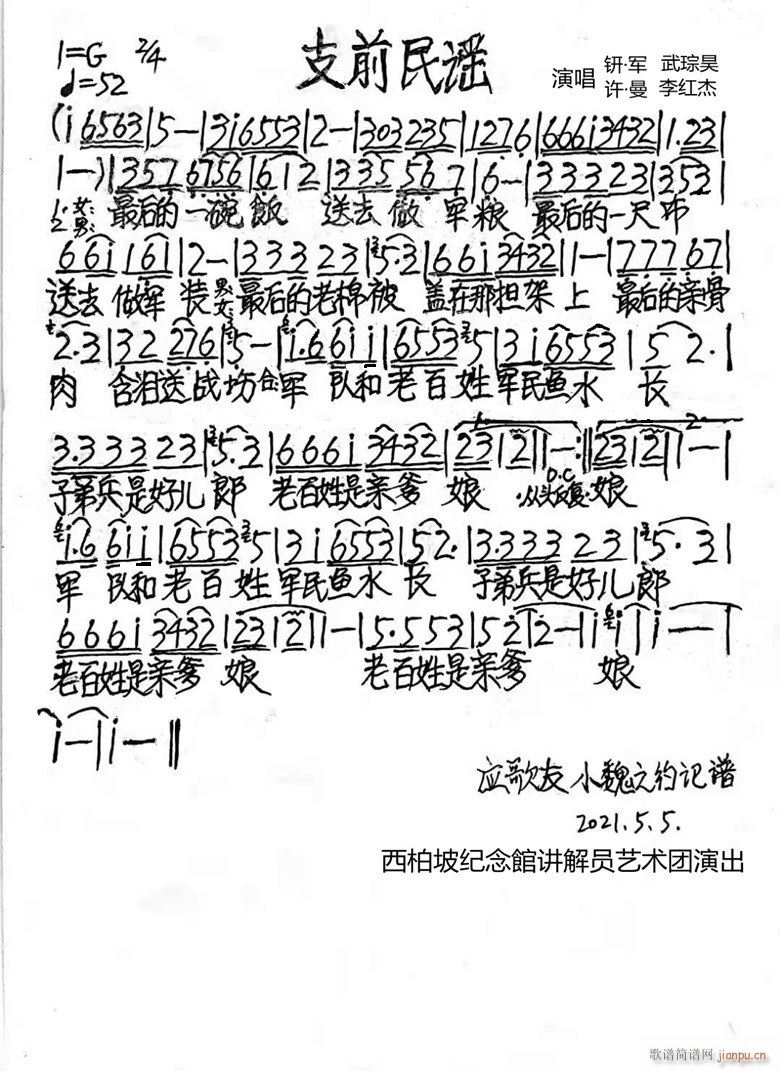 支前民谣
1=G 2/4
♩=52
演唱 钘·军 武琮昊
许·曼 李红杰
(i 6563|5—|3i6553|2—|303235|1276|666i3432|1.23|
1—)|357 6756|61 2|335 567|6—|33323|353|
1.女: 2.男: 最后的一碗飯 送去做 军粮 最后的一尺布
66i 161|2—|333 23|5.3|66i 3432|1—|777 67|
送去 做军 装 男: 女: 最后的老棉被 盖在那担架上 最后的亲骨
2.3|32 276|5—|i.66ii|65535|3i6553|5 2.|
肉 含泪送战场 合:军 队和老百姓军民鱼水 长
3.333 23|5.3|666i 3432|23 12|1—:‖23 12|1—|
子弟兵是好儿郎 老百姓是亲爹 娘 D.C 从头反复 娘
i.6 6ii|65535|3i6553|52.|3.333 23|5.3|
军 队和老百姓军民鱼水长 子弟兵是好儿郎
666i 3432|23 12|1—|5.553|52|2—|i i|i—|
老百姓是亲爹 娘 老百姓是亲爹 娘
i—|i—‖
应歌友小魏之约记谱
2021.5.5.
西柏坡纪念館讲解员艺术团演出
歌谱简谱网 jianpu.cn